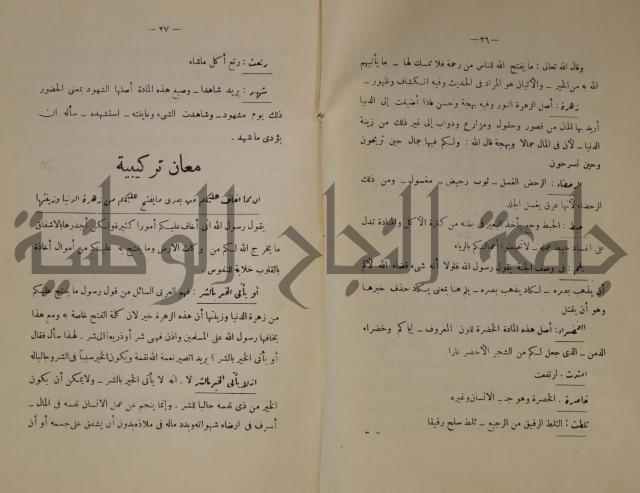 — ٢٦ —
وقال الله تعالى : ما يفتح الله للناس من رحمة فلا ممسك لها — ما يأتيهم
الله به من الخير — والأتيان هو المراد في الحديث وفيه انكشاف وظهور —
زهرة : أصل الزهرة النور وفيه بهجة وحسن فاذا أضيفت إلى الدنيا
أريد بها المال من قصور وحقول ومزارع ودواب إلى غير ذلك من زينة
الدنيا — لأن في المال جمالا وبهجة قال الله : ولكم فيها جمال حين تريحون
وحين تسرحون
الرحضاء : الرحض الغسل — ثوب رحيض — مغسول — ومن ذلك
الرحضاء لأنها عرق يغسل الجلد
حبط : الحبط وجع يأخذ البعير في بطنه من كثرة الأكل والمادة تدل
على افساد
يلم : في وصف الجنة يقول رسول الله فلولا أنه شيء قضاه الله لألم
أن يذهب بصره — لكاد يذهب بصره — يلم هنا بمعنى يكاد حذف خبرها
وهو أن يقتل
الخضراء : أصل هذه المادة الخضرة للون المعروف — إياكم وخضراء
الدمن — الذي جعل لكم من الشجر الأخضر نارا
امتدت . ارتفعت
خاصرة . الخصرة وهو جنب الانسان وغيره
ثلطت : الثلط الرقيق من الرجيع — ثلط سلح رقيقا
— ٢٧ —
رتعت : رتع أكل ماشاء
شهد : يريد شاهدا — وصيغ هذه المادة أصلها الشهود بمعنى الحضور
ذلك يوم مشهود — وشاهدت الشيء وعاينته — استشهده — سأله ان
يؤدي ما شهد .
معان تركيبية
ان مما اخاف عليكم من بعدي ما يفتح عليكم من زهرة الدنيا وزينتها
يقول رسول الله أنى أخاف عليكم أمورا كثيرة ولكن أجدرها بالاشفاق
ما يخرج الله لكم من بركات الأرض وما يفتح به عليكم من أموال أخاذة
بالقلوب خلابة للنفوس .
أو يأتى الخير بالشر : فهم العربى السائل من قول رسول ما يفتح عليكم
من زهرة الدنيا وزينتها أن هذه الزهرة خير لان كلمة الفتح خاصة به ومع هذا
يخافها رسول الله على المسلمين واذن فهى شر أو ذريعة الى شر . لهذا سأل فقال
أو يأتى الخير بالشر ؟ يريد اتصير نعمة الله نقمة ويكون الخير سببا في الشر وجالبا له
انه لا يأتى الخير بالشر لا . انه لا يأتى الخير بالشر — ولا يمكن أن يكون
الخير من ذى نفسه جالبا للشر . وإنما ينجم عن عمل الانسان نفسه فى المال —
أسرف في ارضاء شهواته وبدد ماله في ملاذه بدون أن يشفق على جسمه أو أن
جامعة النجاح الوطنية